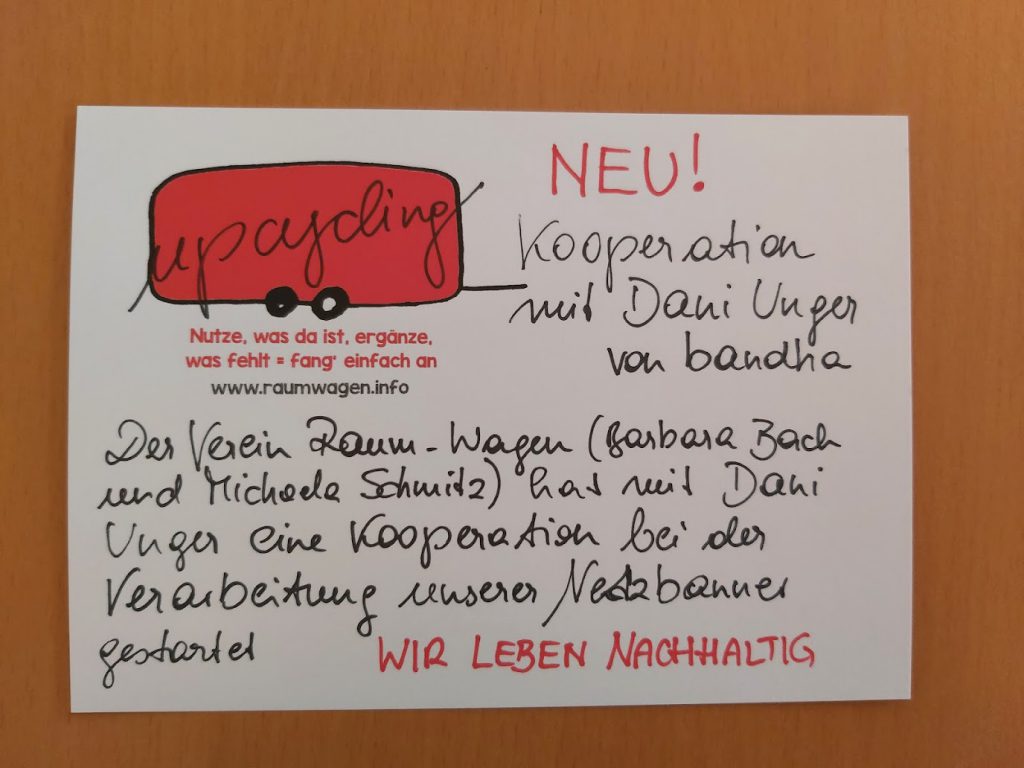 upcycling
Nutze, was da ist, ergänze,
was fehlt = fang' einfach an
www.raumwagen.info
NEU!
Kooperation
mit Dani Unger
von bandha
Der Verein Raum-Wagen (Barbara Bach
und Michaela Schmitz) hat mit Dani
Unger eine Kooperation bei der
Verarbeitung unserer Netzbanner
gestartet
WIR LEBEN NACHHALTIG